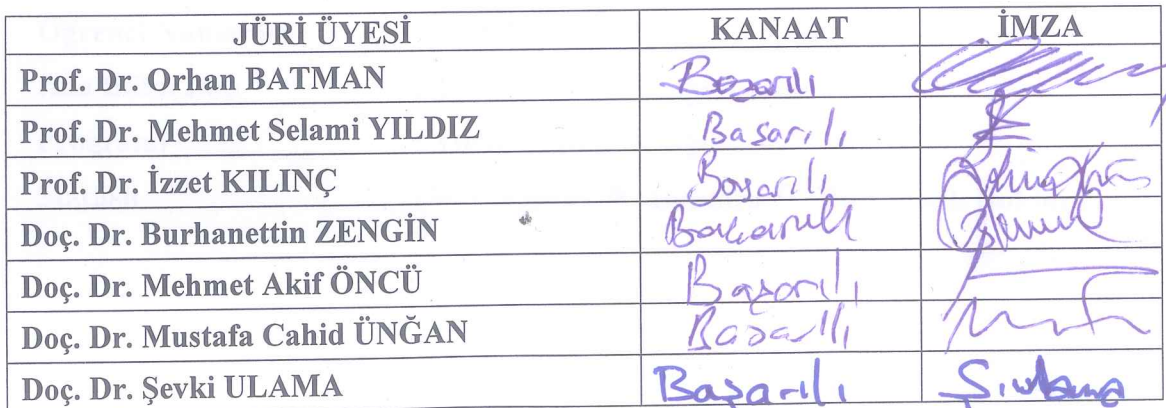 JÜRİ ÜYESİ KANAAT İMZA
Prof. Dr. Orhan BATMAN Başarılı
Prof. Dr. Mehmet Selami YILDIZ Başarılı
Prof. Dr. İzzet KILINÇ Başarılı
Doç. Dr. Burhanettin ZENGİN Başarılı
Doç. Dr. Mehmet Akif ÖNCÜ Başarılı
Doç. Dr. Mustafa Cahid ÜNĞAN Başarılı
Doç. Dr. Şevki ULAMA Başarılı Ş.ulama